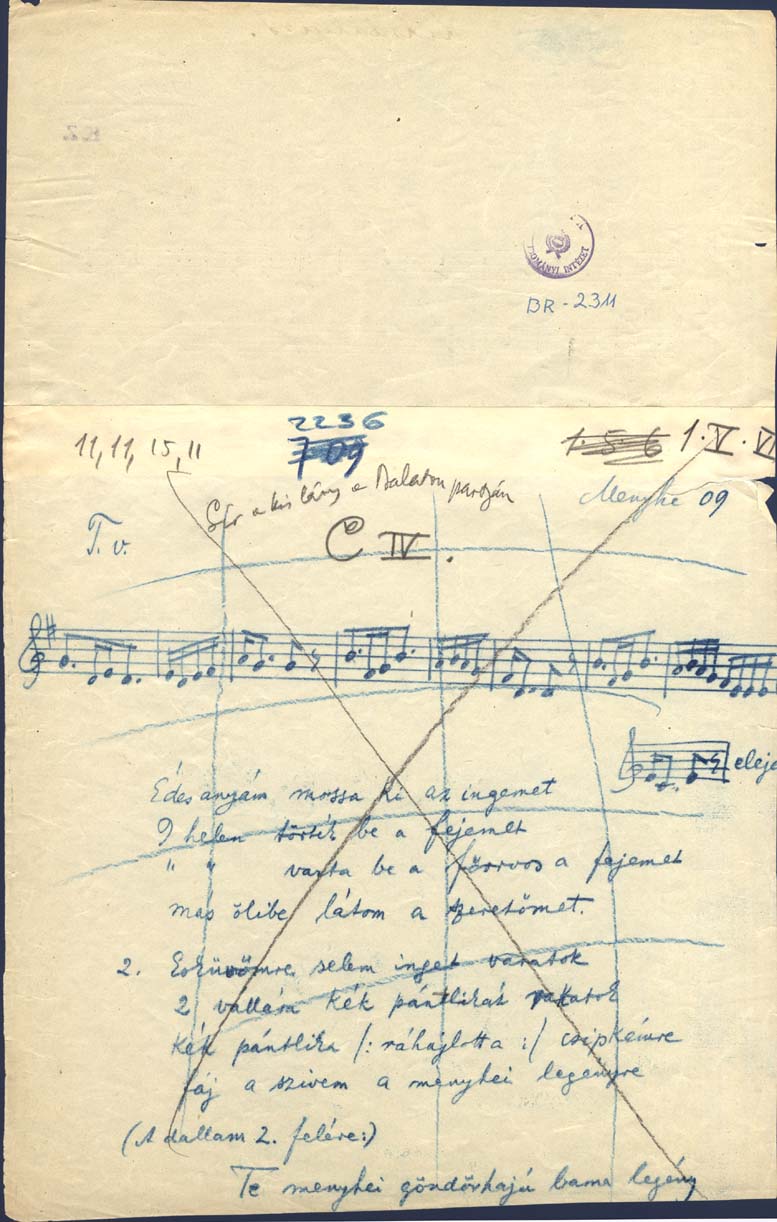 OMÁNYI INTÉZET
BR-2311
11, 11, 15, 11
2236
709
1·5·6 1·V·VI
Sír a kis lány a Balaton partján
Menyhe 09
T. v.
C IV.
eleje
Édesanyám mossa ki az ingemet
9 helen törték be a fejemet
" " varta be a főorvos a fejemet
más ölibe látom a szeretőmet.
2. Esküvőmre selem inget varatok
2 vállára kék pántlikát rakatok
Kék pántlika /: ráhajlotta :/ csipkémre
fáj a szivem a menyhei legényre
(A dallam 2. felére:)
Te menyhei göndörhajú barna legény